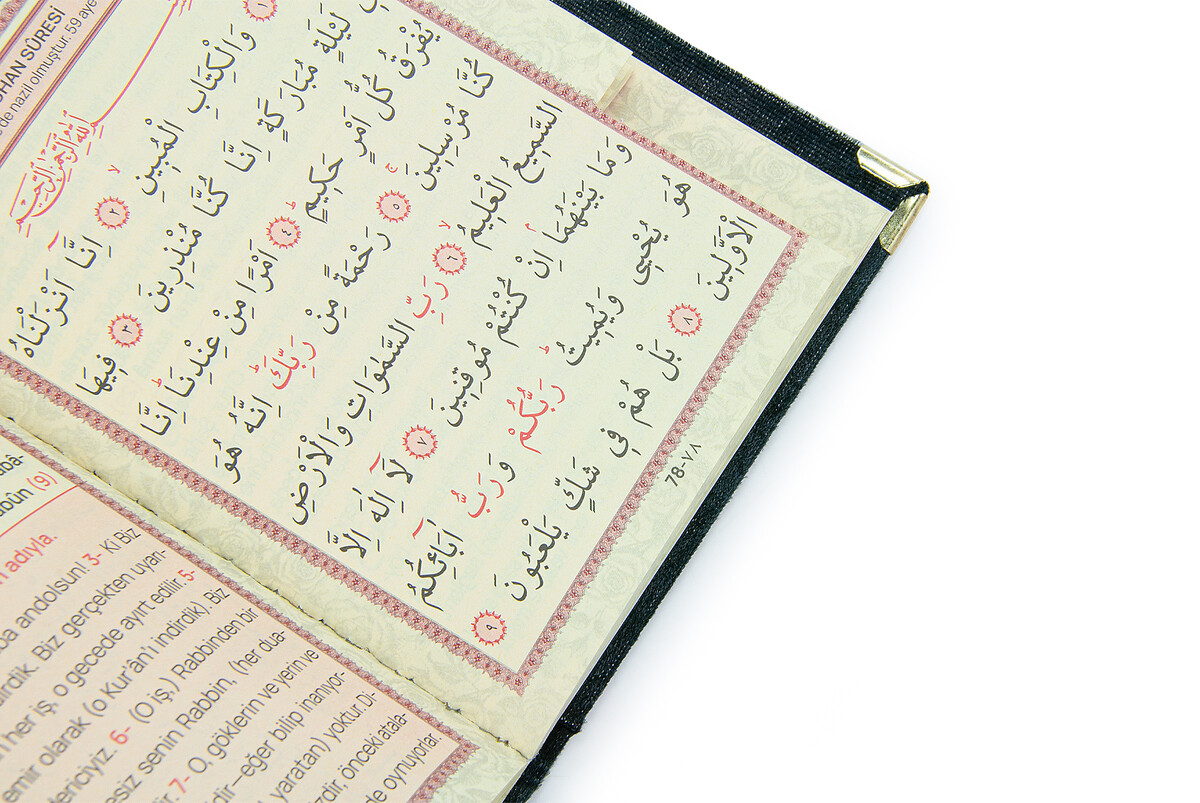 HAN SÛRESİ
de nazil olmuştur, 59 aye
بِسْمِ اللّٰهِ الرَّحْمٰنِ الرَّحِيمِ
١ وَالْكِتَابِ الْمُبِينِۙ ٢ اِنَّٓا اَنْزَلْنَاهُ
لَيْلَةٍ مُبَارَكَةٍ اِنَّا كُنَّا مُنْذِرِينَ ٣ فِيهَا
يُفْرَقُ كُلُّ اَمْرٍ حَكِيمٍۜ ٤ اَمْرًا مِنْ عِنْدِنَاۜ اِنَّا
كُنَّا مُرْسِلِينَۚ ٥ رَحْمَةً مِنْ رَبِّكَۜ اِنَّهُ هُوَ
السَّمِيعُ الْعَلِيمُۙ ٦ رَبِّ السَّمٰوَاتِ وَالْاَرْضِ
وَمَا بَيْنَهُمَاۢ اِنْ كُنْتُمْ مُوقِنِينَ ٧ لَٓا اِلٰهَ اِلَّا
هُوَ يُحْيِي وَيُمِيتُۜ رَبُّكُمْ وَرَبُّ اٰبَٓائِكُمُ
الْاَوَّلِينَ ٨ بَلْ هُمْ فِي شَكٍّ يَلْعَبُونَ ٩
78-٧٨
(9)
adıyla.
andolsun! 3- Ki Biz
Biz gerçekten uyarı-
her iş, o gecede ayırt edilir. 5-
emir olarak (o Kur'ân'ı indirdik). Biz
6- (O iş,) Rabbinden bir
senin Rabbin, (her dua-
7- O, göklerin ve yerin ve
eğer bilip inanıyor-
yaratan) yoktur. Di-
önceki atala-
de oynuyorlar.